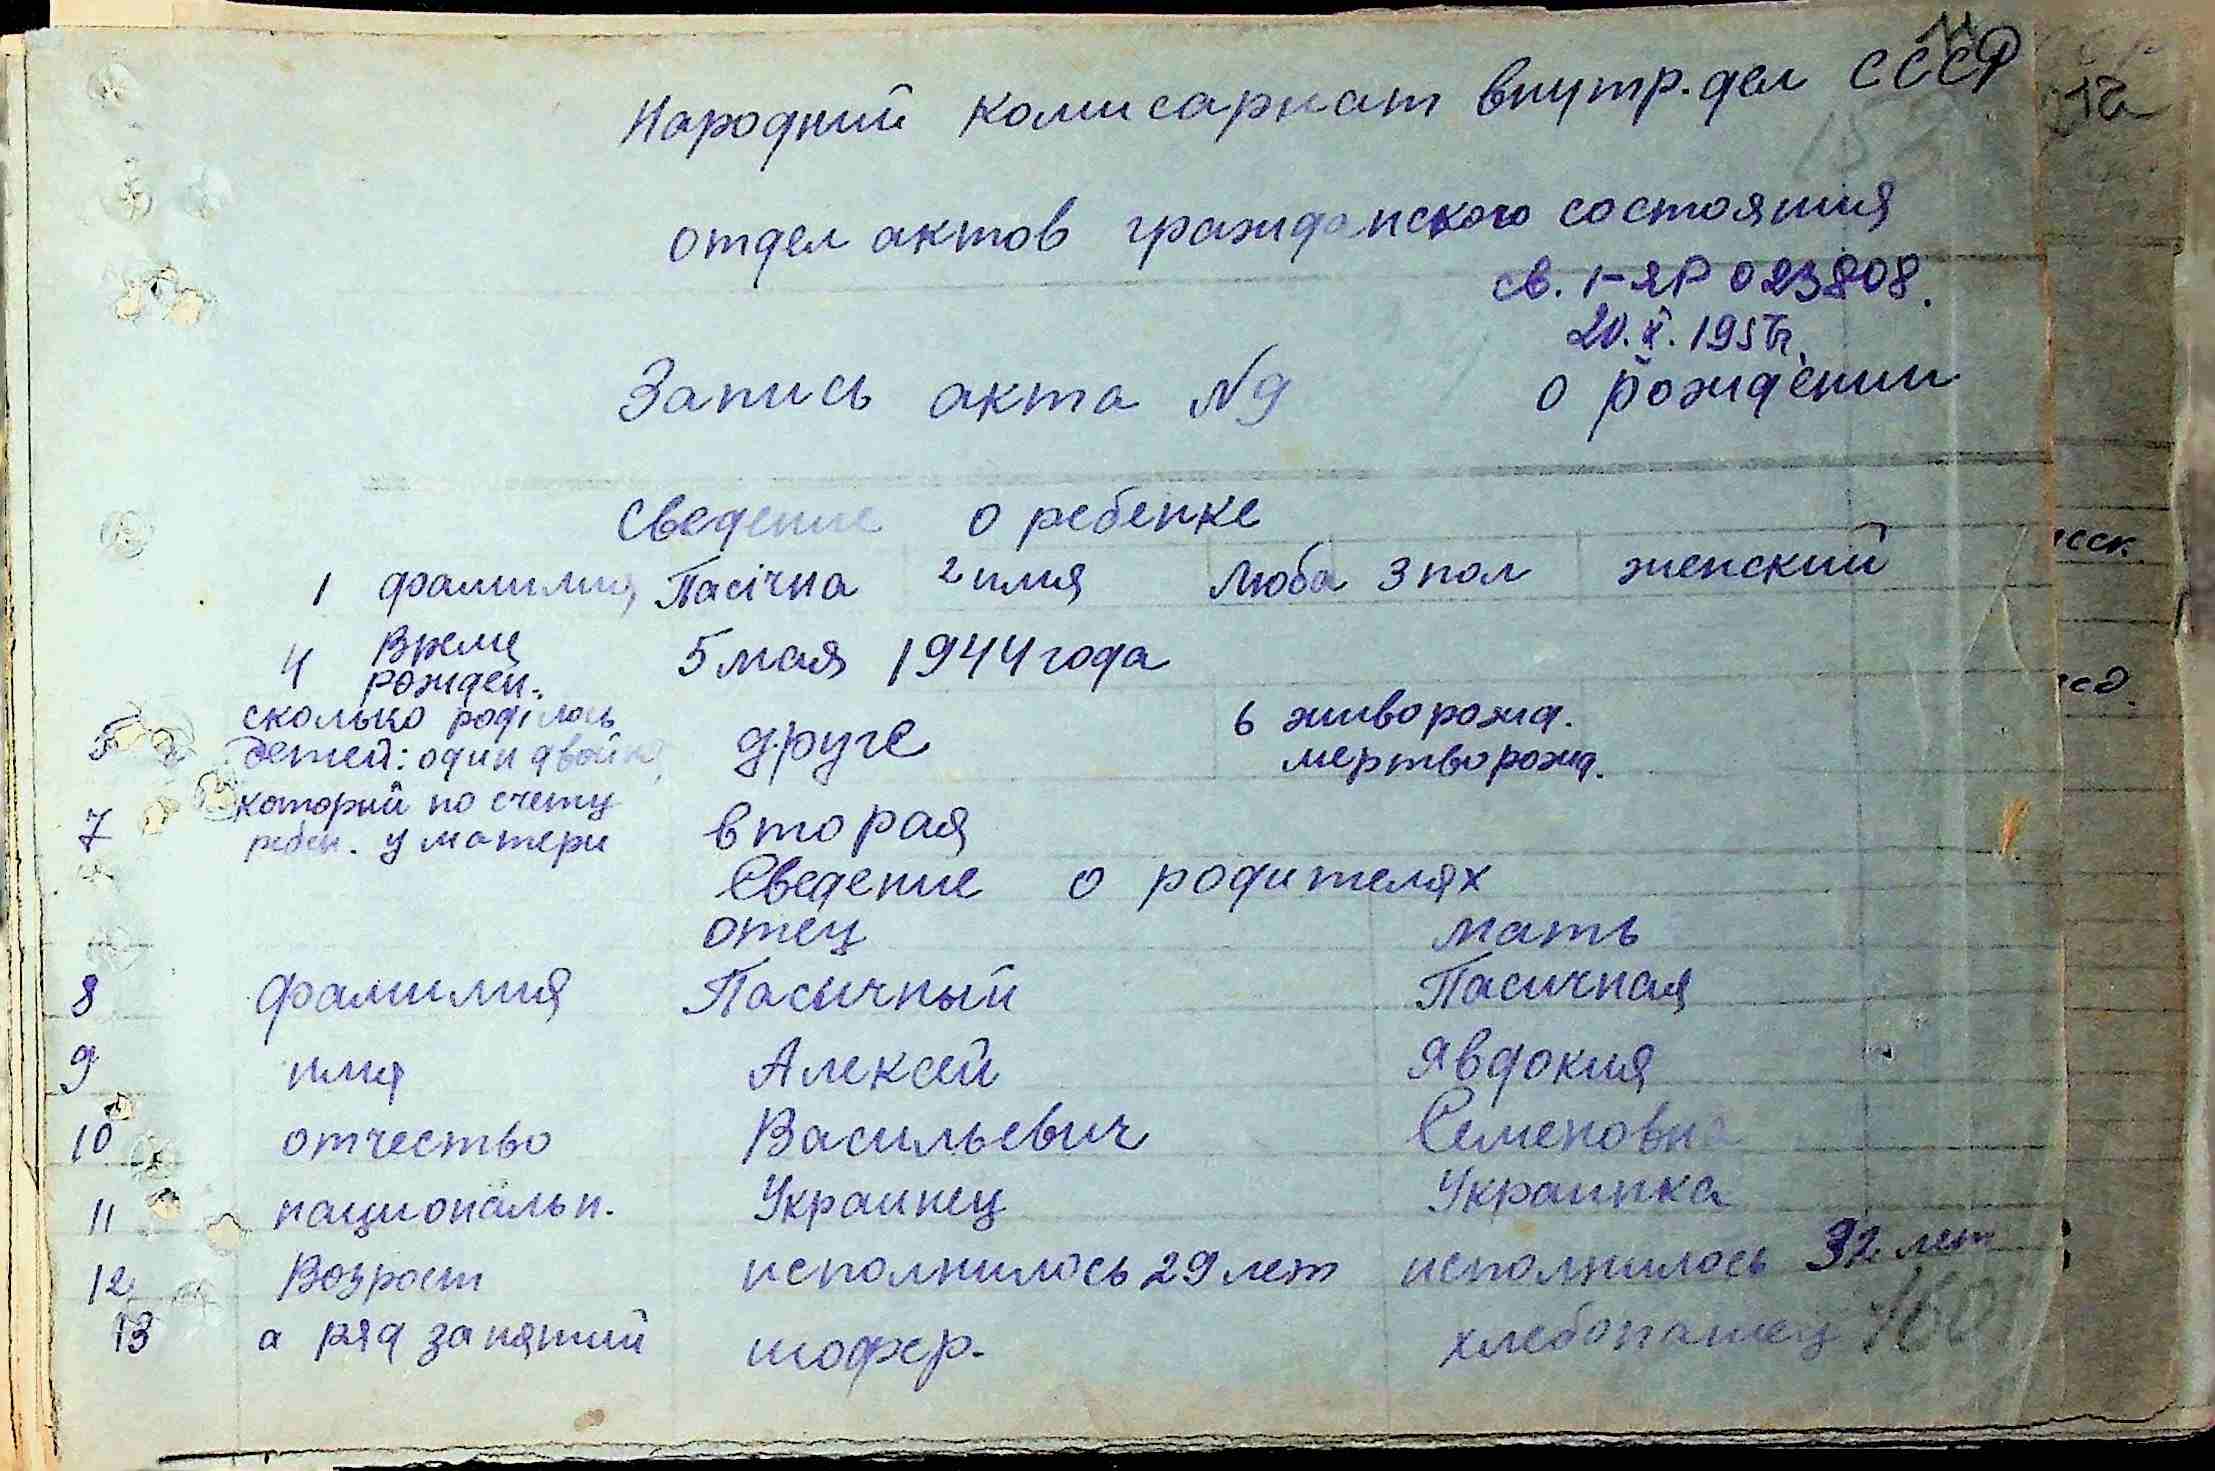 Народний комисариат внутр. дел СССР
отдел актов гражданского состояния
св. 1-ЯР 023808.
20.X.195
Запись акта N9 о рождении
Сведение о ребенке
1 фамилия Пасічна 2 имя Люба 3 пол женский
4 Время рожден. 5 мая 1944 года
5 сколько роділось детей: один двойн друге 6 живворожд. мертворожд.
7 которий по счету ребен. у матери вторая
Сведение о родителях
отец мать
8 фамилия Пасичный Пасичная
9 имя Алексей Явдокия
10 отчество Васильевич Семеновна
11 национальн. Украинец Украинка
12 Возраст исполнилось 29 лет исполнилось 32 лет
13 а ряд занятий шофер. хлебопашец